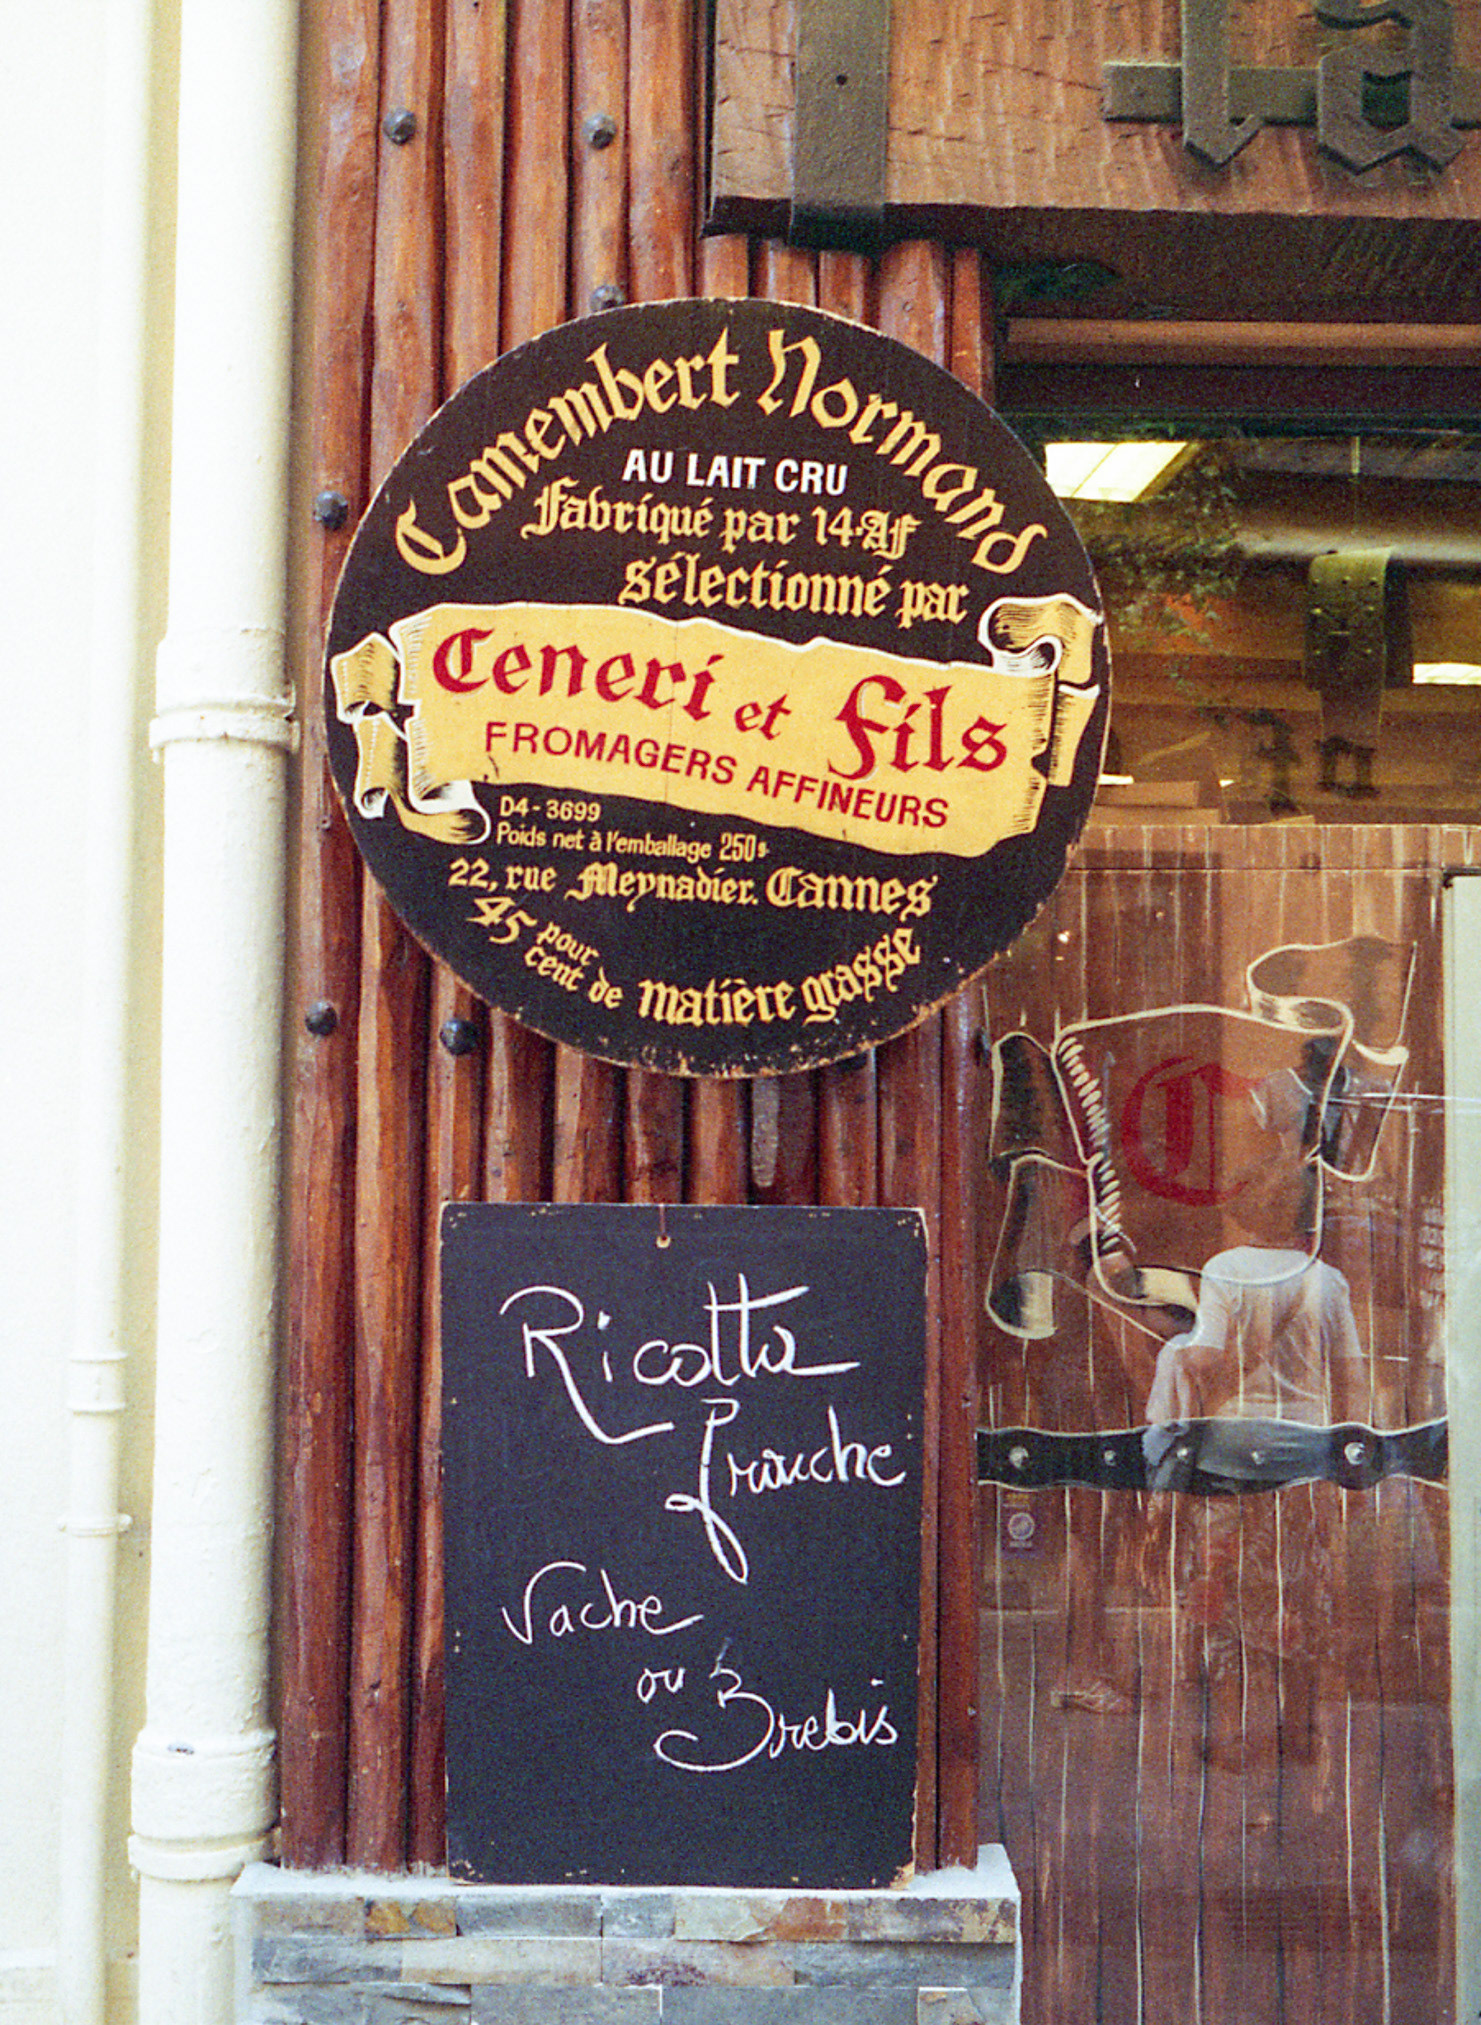 la
Camembert Normand
AU LAIT CRU
Fabriqué par 14-AF
sélectionné par
Ceneri et Fils
FROMAGERS AFFINEURS
D4-3699
Poids net à l'emballage 250g
22, rue Meynadier. Cannes
45 pour cent de matière grasse
C
Ricotta
fraiche
Vache
ou Brebis